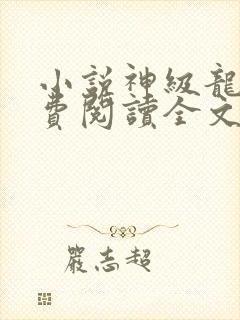 小説神級龍
費閱讀全文
嚴志超